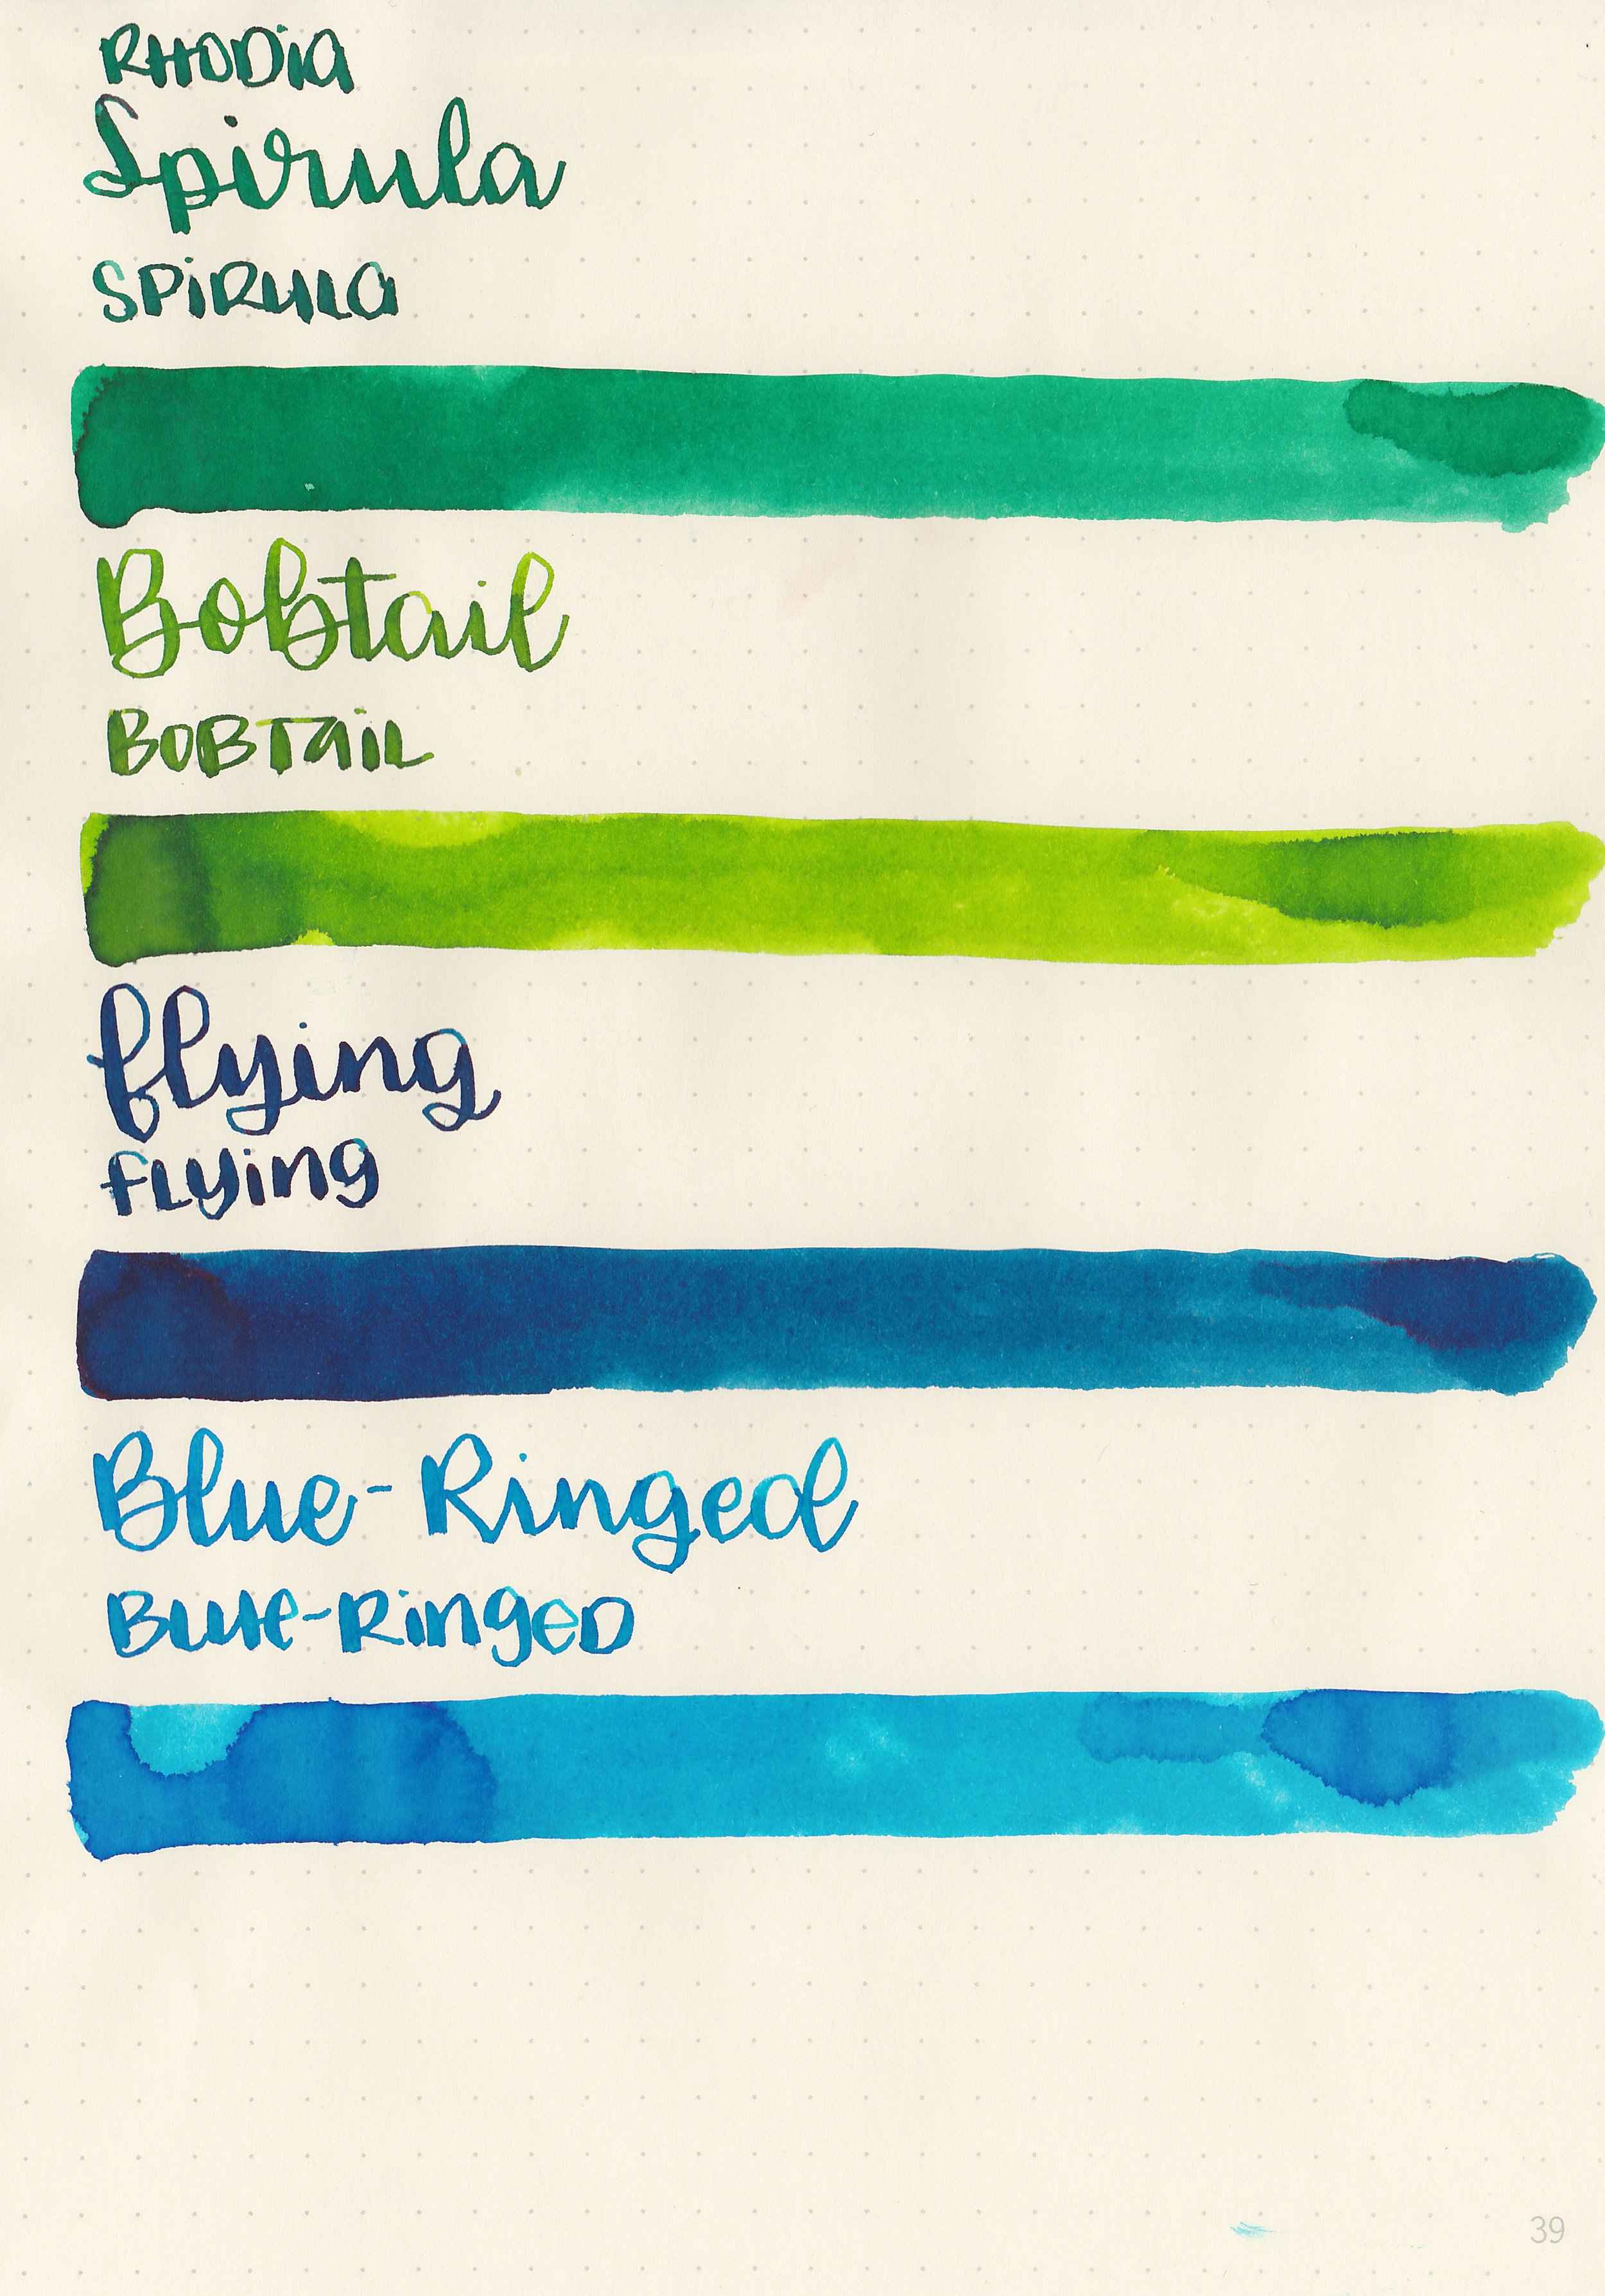 RHODiA
Spirula
SPiRULA
Bobtail
BOBTAiL
flying
FLying
Blue-Ringed
BLUe-RingeD
39